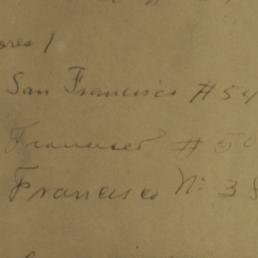 ores /
San Francisco # 54
Francisco # 50
Francisco No: 38